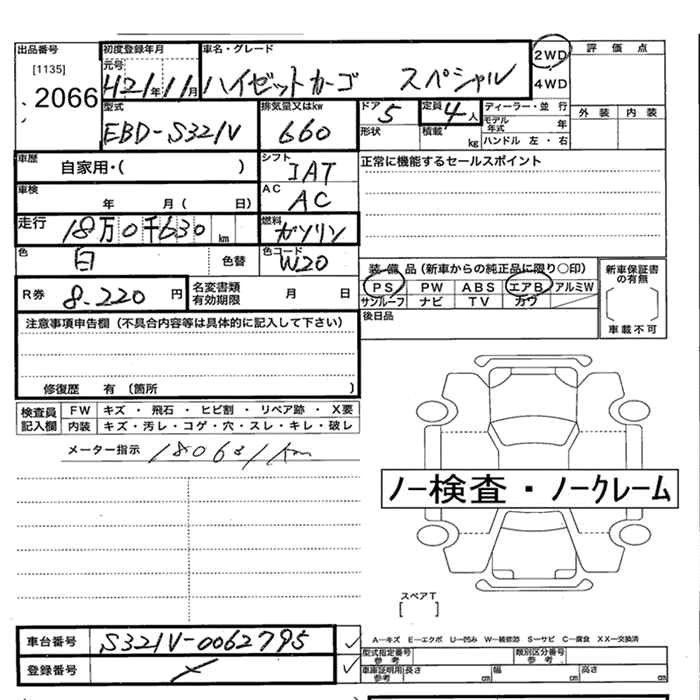 出品番号
[1135]
2066
初度登録年月
元号
H21年11月
車名・グレード
ハイゼットカーゴ スペシャル
2WD
4WD
評価点
外装 内装
型式
EBD-S321V
排気量又はkw
660
ドア
5
形状
定員
4人
積載
kg
ディーラー・並行
モデル年式 年
ハンドル 左・右
車歴
自家用・( )
シフト
IAT
車検
年 月( 日)
AC
AC
正常に機能するセールスポイント
走行
18万0千630km
燃料
ガソリン
色
白
色替
色コード
W20
R券
8.220円
名変書類有効期限
月 日
装備品(新車からの純正品に限り○印)
PS PW ABS エアB アルミW
サンルーフ ナビ TV カワ
後日品
新車保証書の有無
車載不可
注意事項申告欄(不具合内容等は具体的に記入して下さい)
修復歴 有(箇所 )
検査員記入欄
FW キズ・飛石・ヒビ割・リペア跡・X要
内装 キズ・汚レ・コゲ・穴・スレ・キレ・破レ
メーター指示
km
ノー検査・ノークレーム
スペアT
[ ]
車台番号
S321V-0062795
登録番号
A―キズ E―エクボ U―凹み W―補修跡 S―サビ C―腐食 XX―交換済
型式指定番号
参考
類別区分番号
参考
車庫証明用
参考
長さ cm 幅 cm 高さ cm